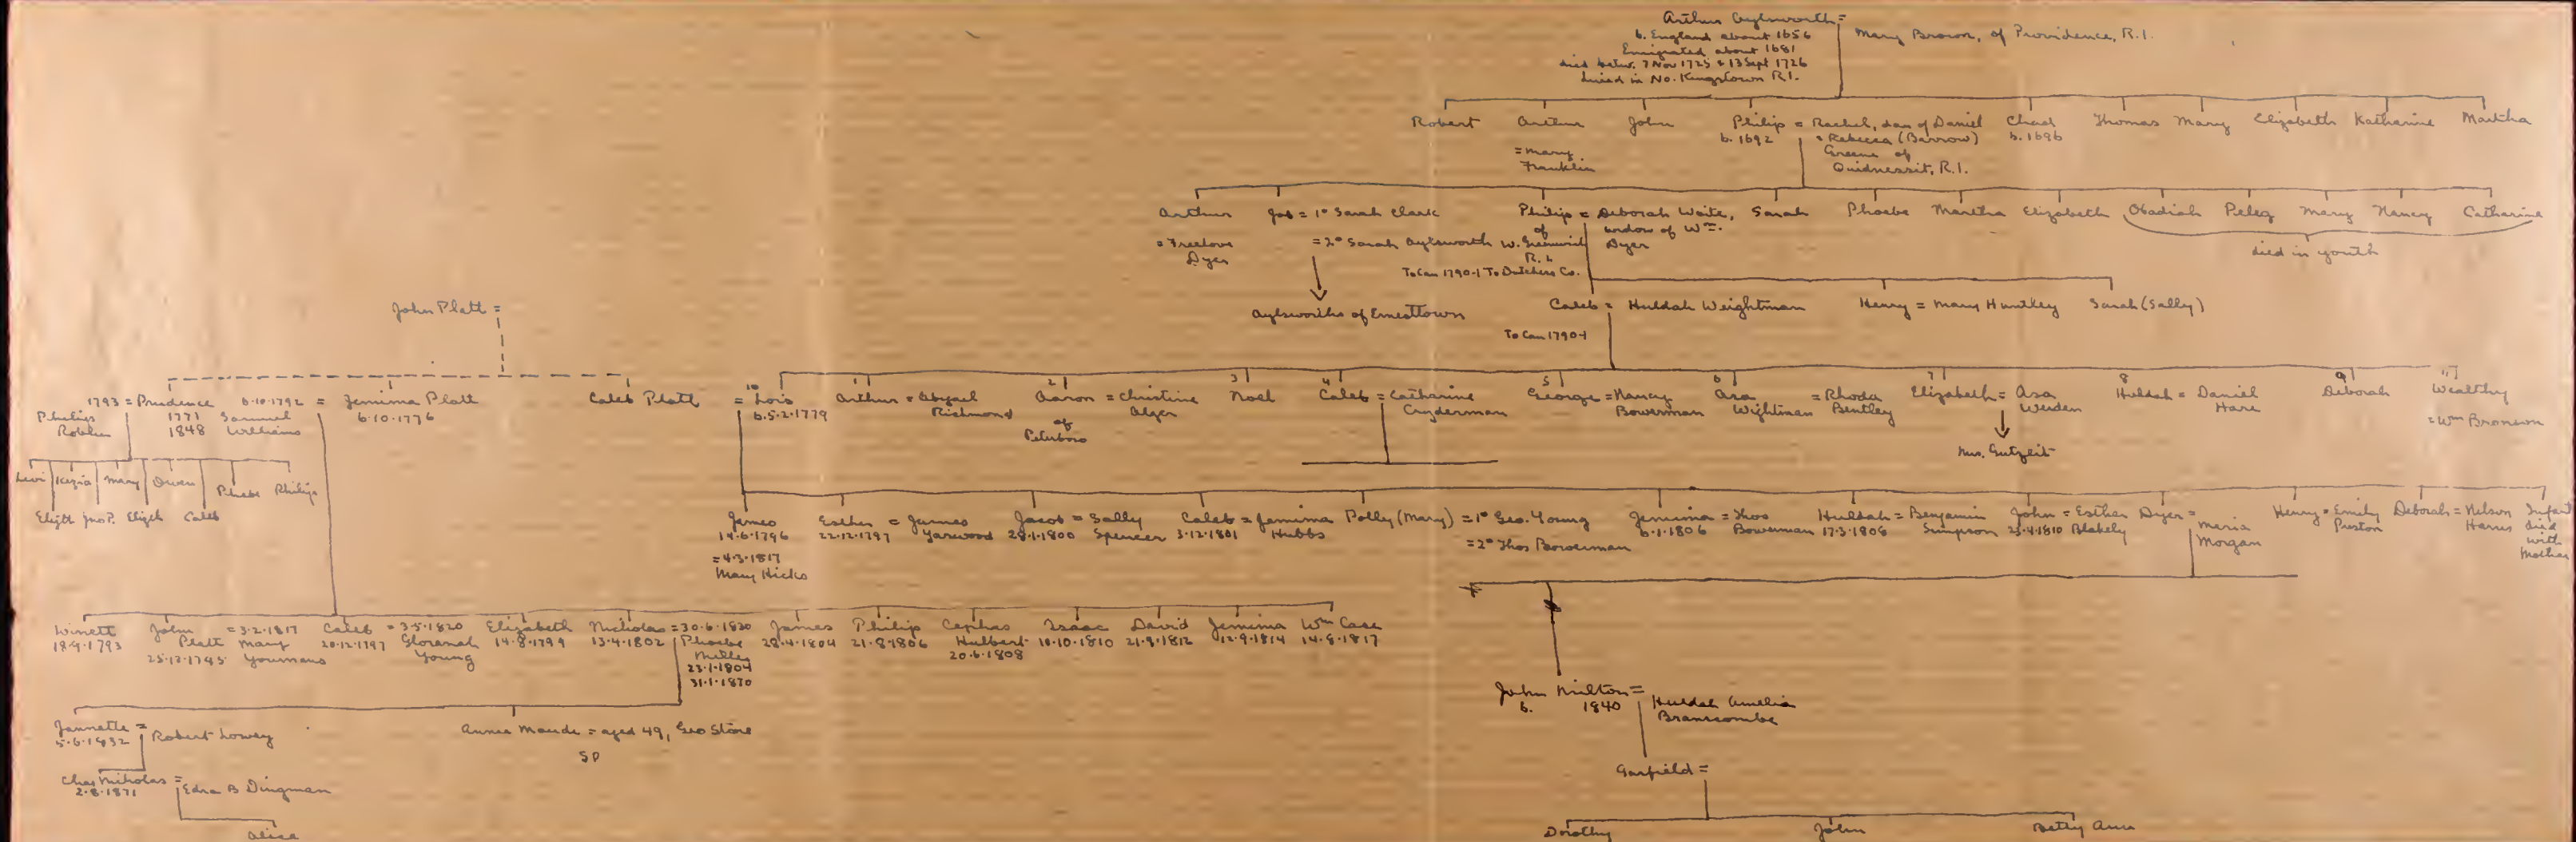 Arthur Aylsworth =
b. England about 1656
Emigrated about 1681
died betw. 7 Nov 1725 & 13 Sept 1726
buried in No. Kingstown R.I.
Mary Brown, of Providence, R.I.
Robert
Arthur
= Mary
Franklin
John
Philip =
b. 1692
Rachel, dau of Daniel
& Rebecca (Barrow)
Greene of
Quidnessit, R.I.
Chad
b. 1696
Thomas
Mary
Elizabeth
Katharine
Martha
Arthur
= Freelove
Dyer
Job = 1° Sarah Clark
= 2° Sarah Aylsworth
Aylsworths of Ernesttown
Philip =
of
W. Greenwich
R.I.
To Can 1790-1 To Dutchess Co.
Deborah Waite,
widow of Wm.
Dyer
Sarah
Phoebe
Martha
Elizabeth
Obadiah
Peleg
Mary
Nancy
Catharine
died in youth
Caleb = Huldah Weightman
To Can 1790-1
Henry = Mary Huntley
Sarah (Sally)
John Platt =
1793 = Prudence
Philip
Roblin
1771
1848
6.10.1792 =
Samuel
Williams
Jemima Platt
6.10.1776
Caleb Platt =
10
Lois
b. 5.2.1779
1
Arthur = Abigael
Richmond
2
Aaron = Christine
Alger
of
Peterboro
3
Noel
4
Caleb = Catharine
Cryderman
5
George = Nancy
Bowerman
6
Asa
Wightman
= Rhoda
Bentley
7
Elizabeth = Asa
Werden
Mrs. Gutzeit
8
Huldah = Daniel
Hare
9
Deborah
11
Wealthy
= Wm Bronson
Levi
Kezia
Mary
Owen
Phebe
Philip
Elizth
Jno P.
Elizah
Caleb
James
14.6.1796
= 4.3.1817
Mary Hicks
Esther = James
22.12.1797 Yarwood
Jacob = Sally
28.1.1800 Spencer
Caleb = Jemima
3.12.1801 Hubbs
Polly (Mary) = 1° Geo. Young
= 2° Thos Bowerman
Jemima = Thos
6.1.1806 Bowerman
Huldah = Benjamin
17.3.1806 Simpson
John = Esther
25.4.1810 Blakely
Dyer =
Maria
Morgan
Henry = Emily
Preston
Deborah = Nelson
Harris
Infant
died
with
Mother
Winett
18.9.1793
John
Platt
25.12.1745
= 3.2.1817
Mary
Youmans
Caleb
20.12.1797
= 3.5.1820
Gloranah
Young
Elizabeth
14.8.1799
Nicholas
13.4.1802
= 30.6.1830
Phoebe
Miller
23.1.1804
31.1.1870
James
28.4.1804
Philip
21.8.1806
Cephas
Hulbert
20.6.1808
Isaac
10.10.1810
David
21.9.1812
Jemima
12.9.1814
Wm Case
14.8.1817
John Milton =
b. 1840
Huldah Amelia
Branscombe
Jannette =
5.6.1832
Robert Lowey
Annie Maude = aged 49, Geo Stone
SP
Garfield =
Chas Nicholas =
2.8.1871
Edna B Dingman
Alice
Dorothy
John
Betty Ann